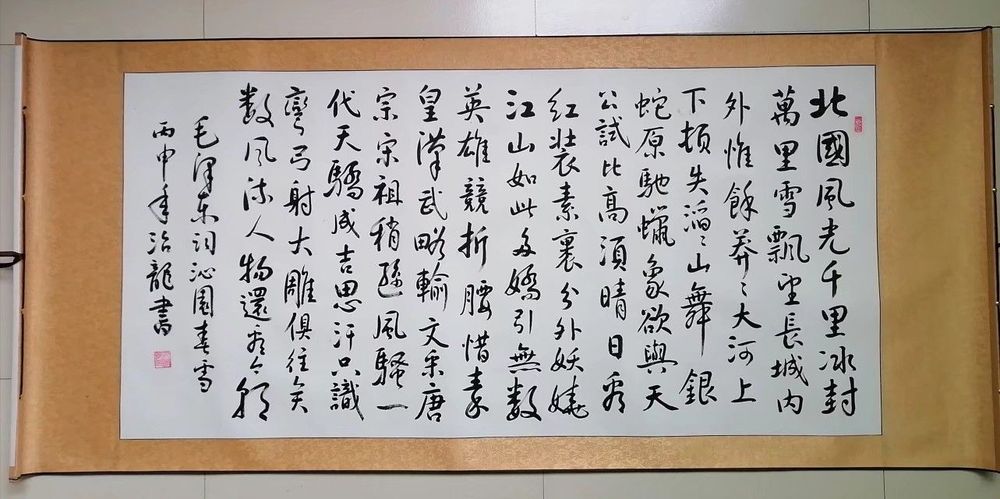 北國風光千里冰封
萬里雪飄望長城内
外惟餘莽〻大河上
下頓失滔〻山舞銀
蛇原馳蠟象欲與天
公試比高須晴日看
红裝素裹分外妖嬈
江山如此多嬌引無数
英雄競折腰惜秦
皇漢武略輸文采唐
宗宋祖稍遜風騷一
代天驕成吉思汗只識
彎弓射大雕俱往矣
数風流人物還看今朝
毛澤东词沁園春雪
丙申年治龍書